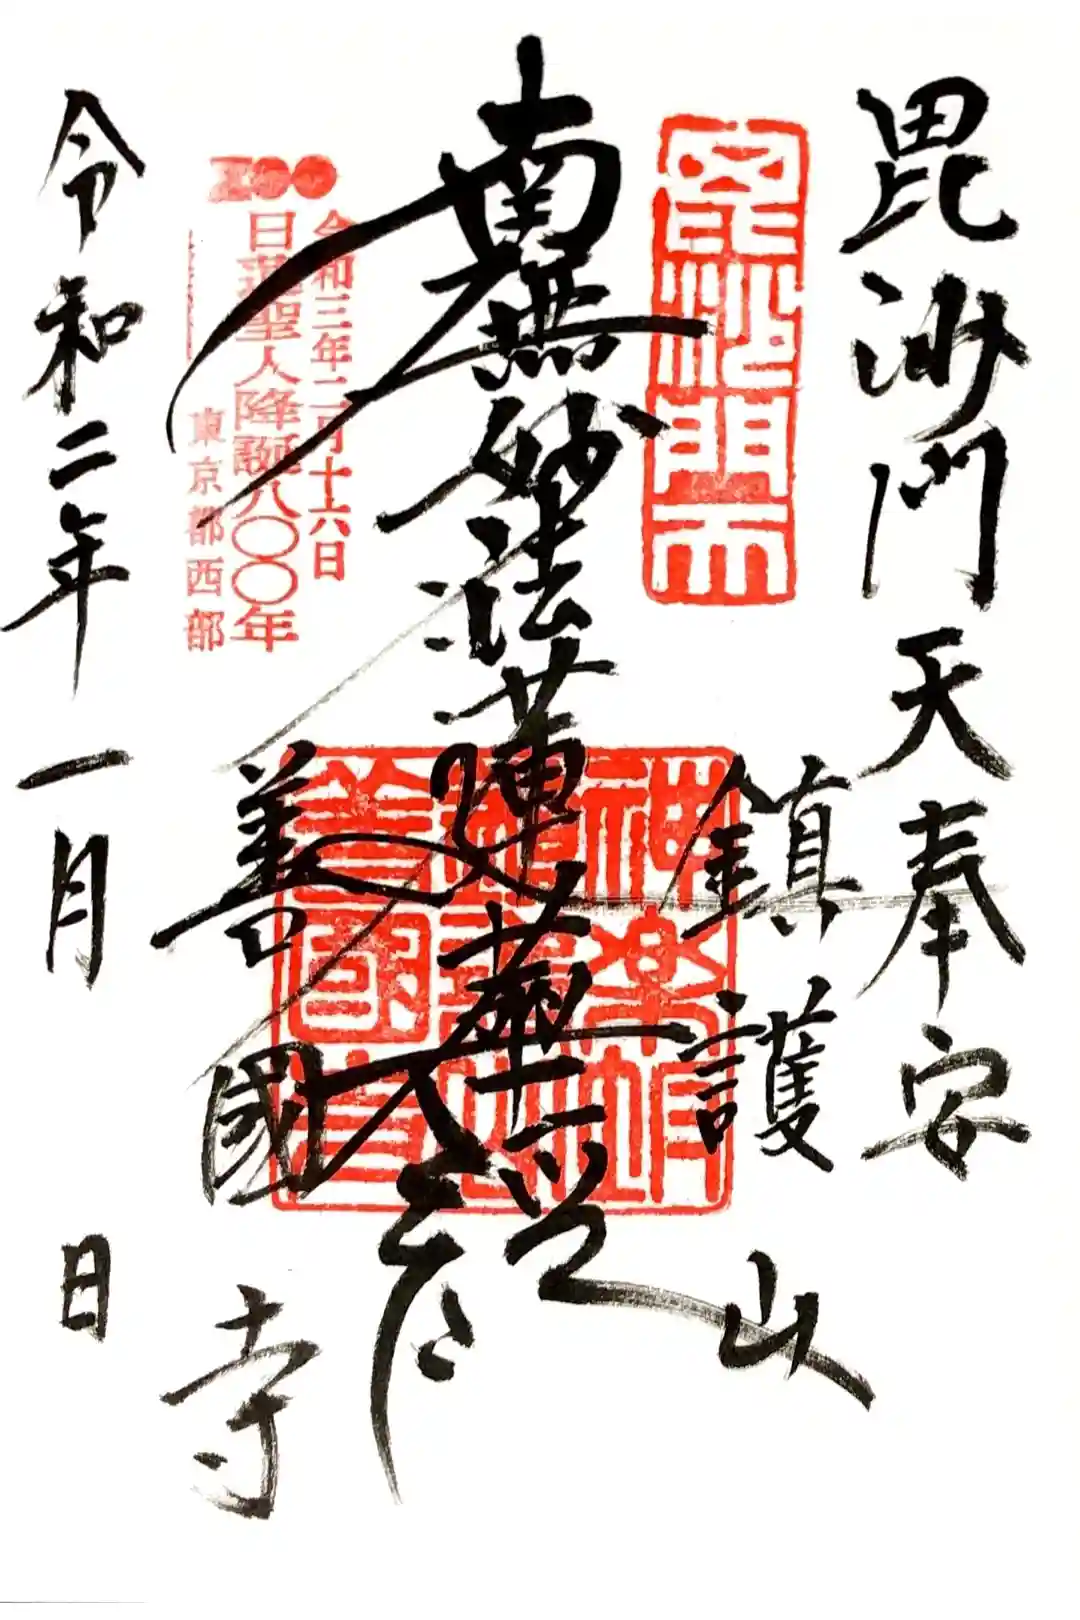 毘沙門天奉安
鎮護山
毘沙門天
南無妙法蓮華経
神楽坂
善國寺
令和三年二月十六日
日蓮聖人降誕八〇〇年
東京都西部
善國寺
令和二年一月 日